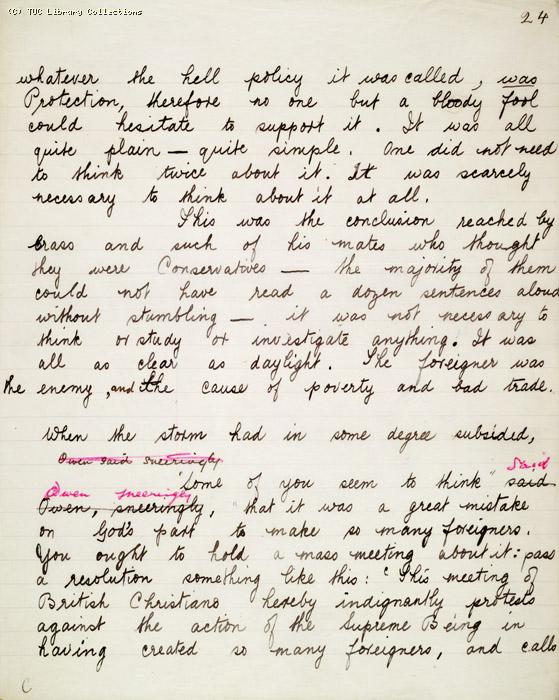 (C) TUC Library Collections
24
whatever the hell policy it was called, was
Protection, therefore no one but a bloody fool
could hesitate to support it. It was all
quite plain — quite simple. One did not need
to think twice about it. It was scarcely
necessary to think about it at all.
This was the conclusion reached by
Crass and such of his mates who thought
they were Conservatives — the majority of them
could not have read a dozen sentences aloud
without stumbling — it was not necessary to
think or study or investigate anything. It was
all as clear as daylight. The foreigner was
the enemy, and the cause of poverty and bad trade.
When the storm had in some degree subsided,
Owen said sneeringly
"Some of you seem to think" said said
Owen sneeringly
Owen, sneeringly, "that it was a great mistake
on God's part to make so many foreigners.
You ought to hold a mass meeting about it: pass
a resolution something like this: 'This meeting of
British Christians hereby indignantly protests
against the action of the Supreme Being in
having created so many foreigners, and calls
C